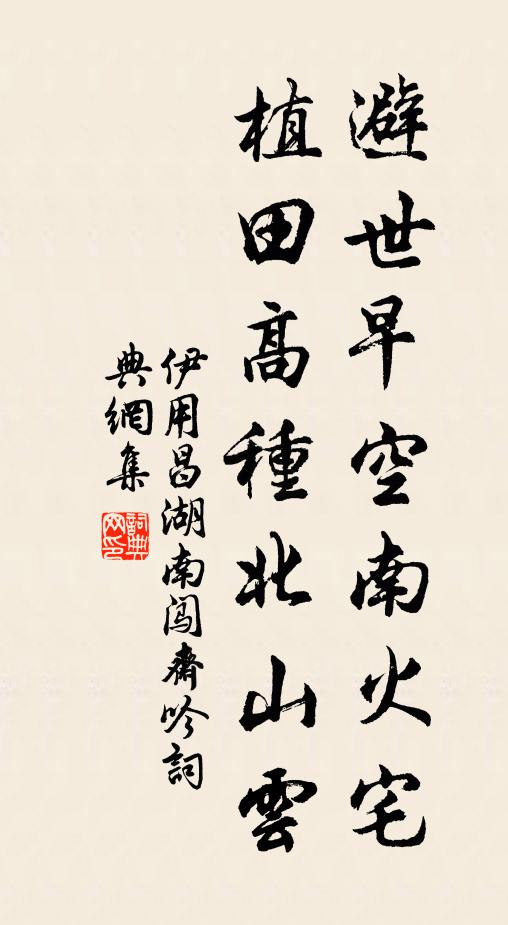 避世早空南火宅
植田高種北山雲
伊用昌湖南闖齋吟詞
典網集
詞典網印